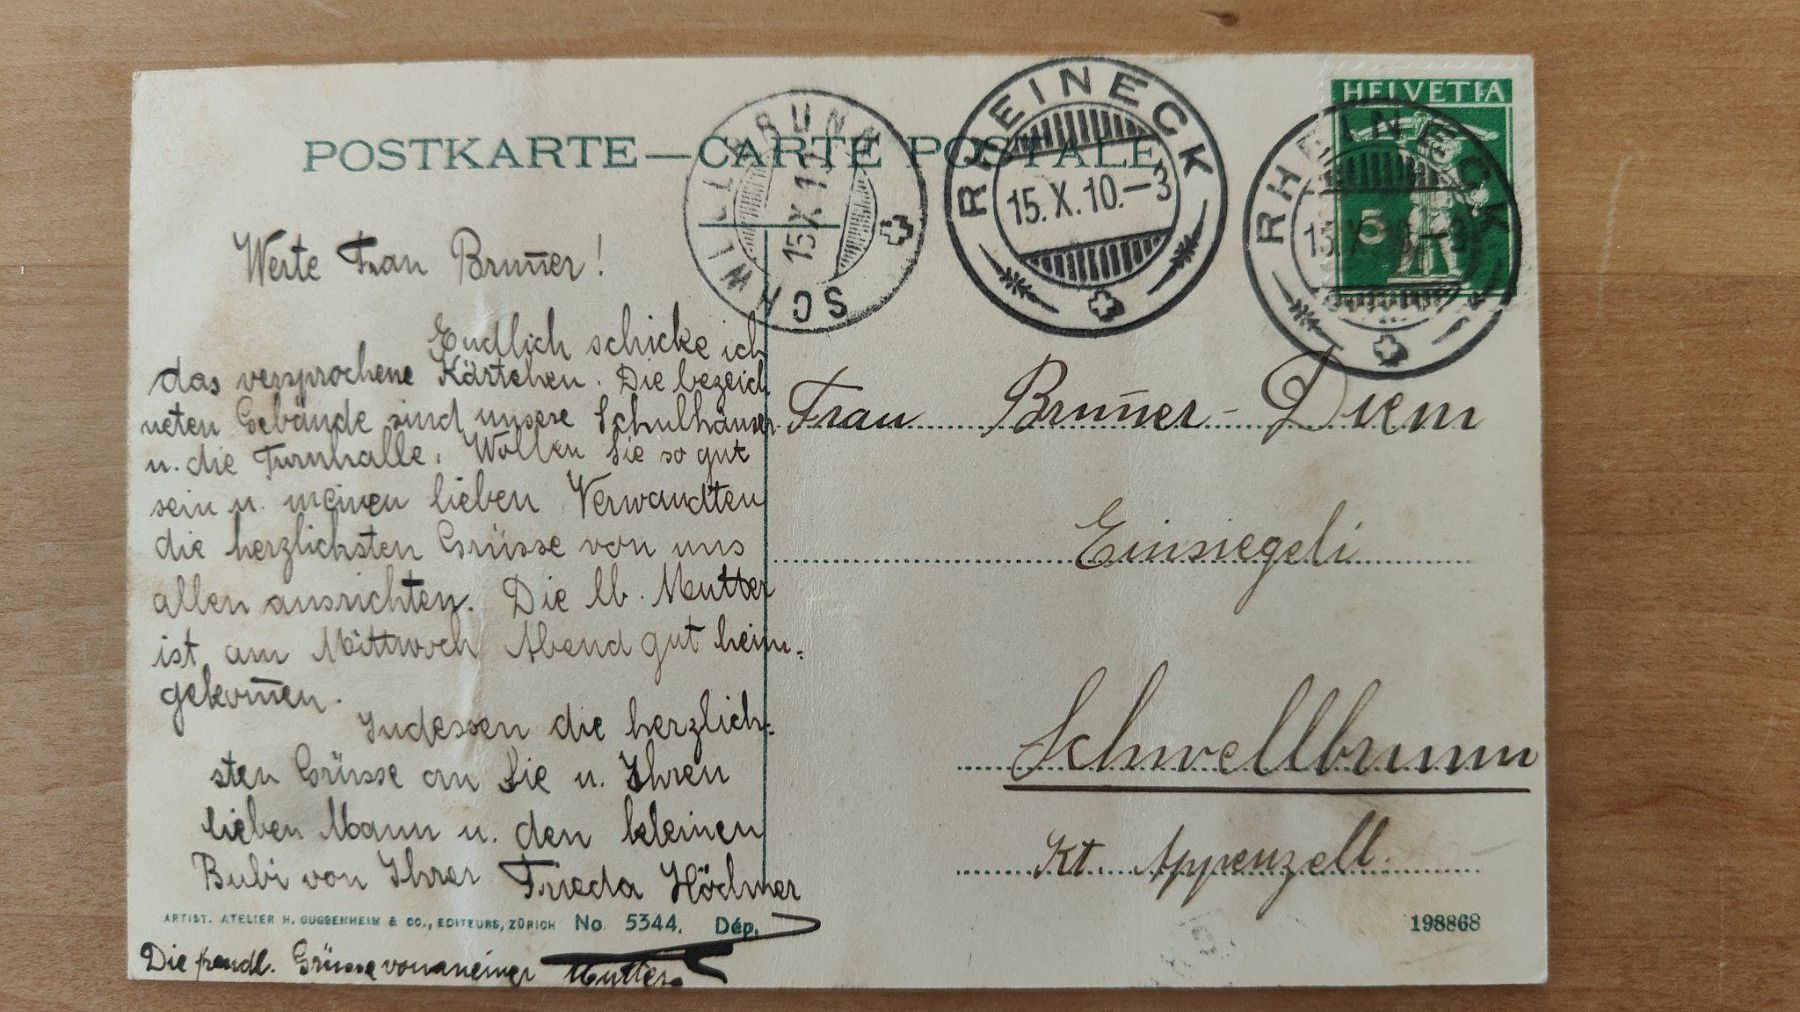 HELVETIA
5
RHEINECK
15. X. 10.–3
RHEINECK
SCHWELLBRUNN
15. X. 10
POSTKARTE — CARTE POSTALE
Werte Frau Brum̅er!
Endlich schicke ich
das versprochene Kärtchen. Die bezeich
neten Gebäude sind unsere Schulhäuser
u. die Turnhalle. Wollen Sie so gut
sein u. meinen lieben Verwandten
die herzlichsten Grüsse von uns
allen ausrichten. Die lb. Mutter
ist am Mittwoch Abend gut heim-
gekom̅en.
Indessen die herzlich-
sten Grüsse an Sie u. Ihren
lieben Mann u. den kleinen
Bubi von Ihrer Frieda
Die freudl. Grüsse von meiner Mutter
ARTIST. ATELIER H. GUGGENHEIM & CO., EDITEURS, ZÜRICH No 5344. Dép.
Frau Brum̅er-Diem
Einsiegeli
Schwellbrunn
Kt. Appenzell.
198868